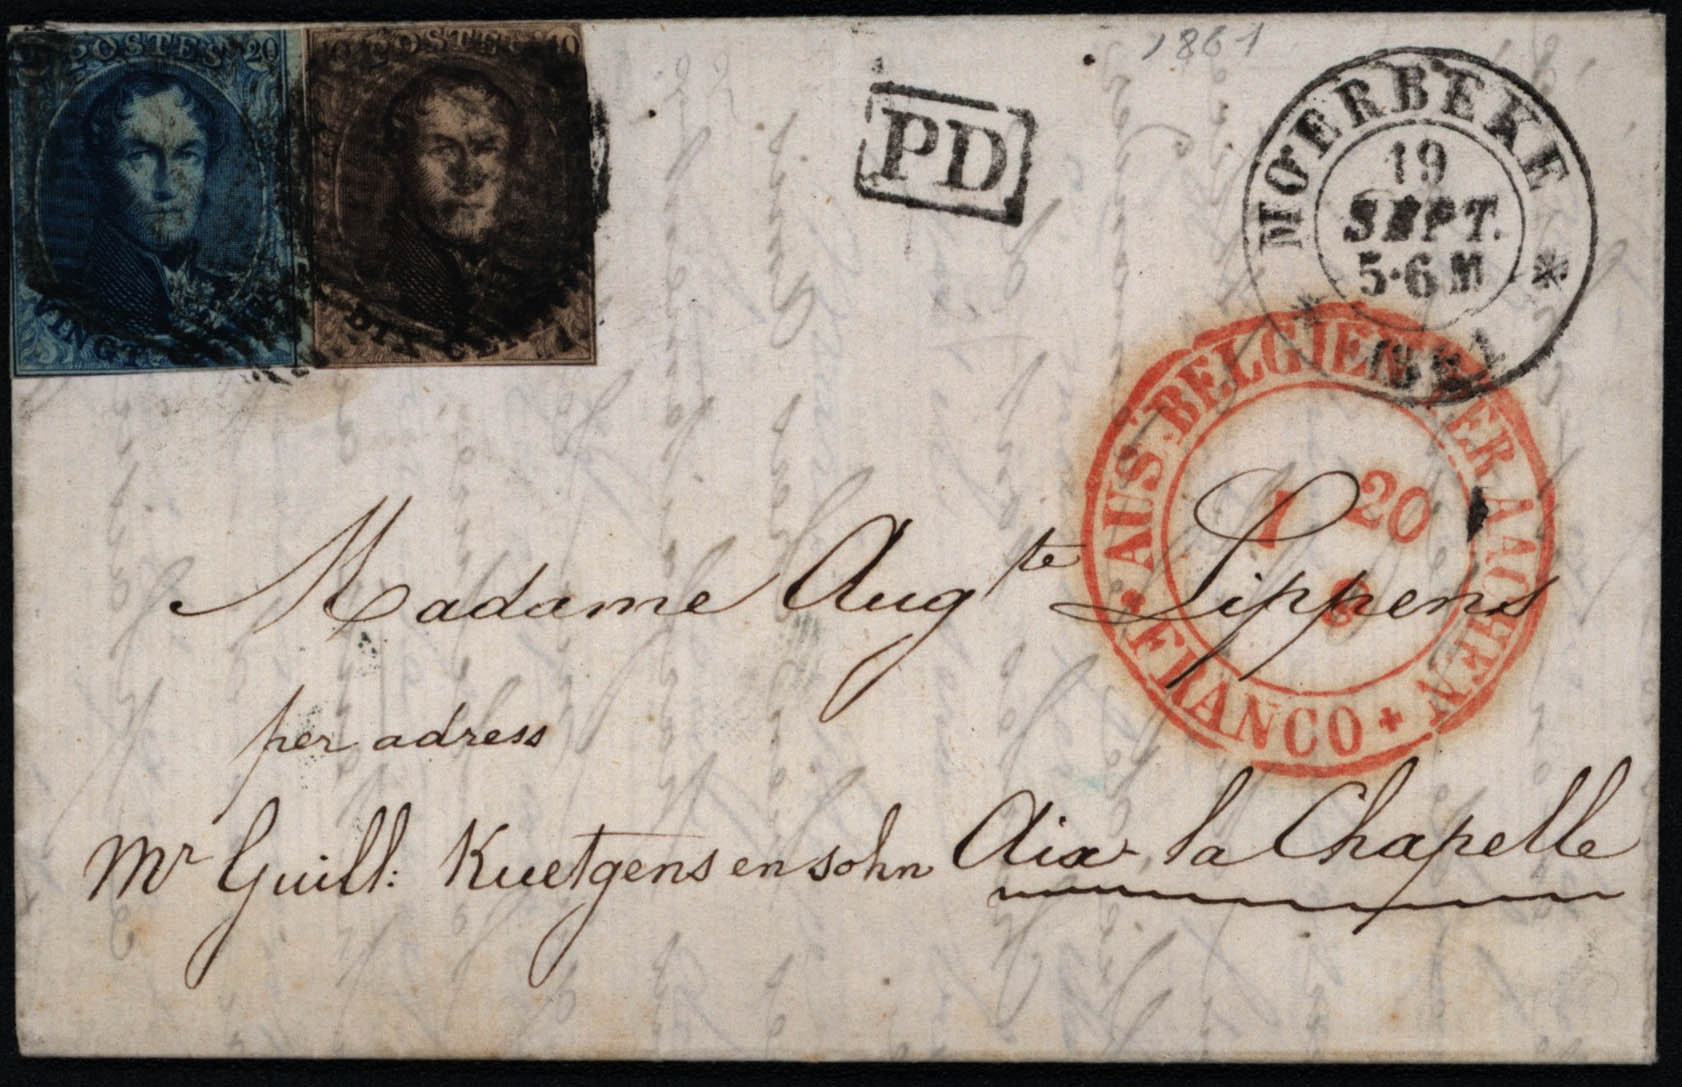 POSTES 20
VINGT
10 POSTES 10
DIX CEN
PD
1861
MOERBEKE
19
SEPT.
5·6 M
AUS BELGIEN PER AACHEN
20
FRANCO
Madame Augte Lippens
per adress
Mr Guill: Kuetgens en sohn Aix la Chapelle